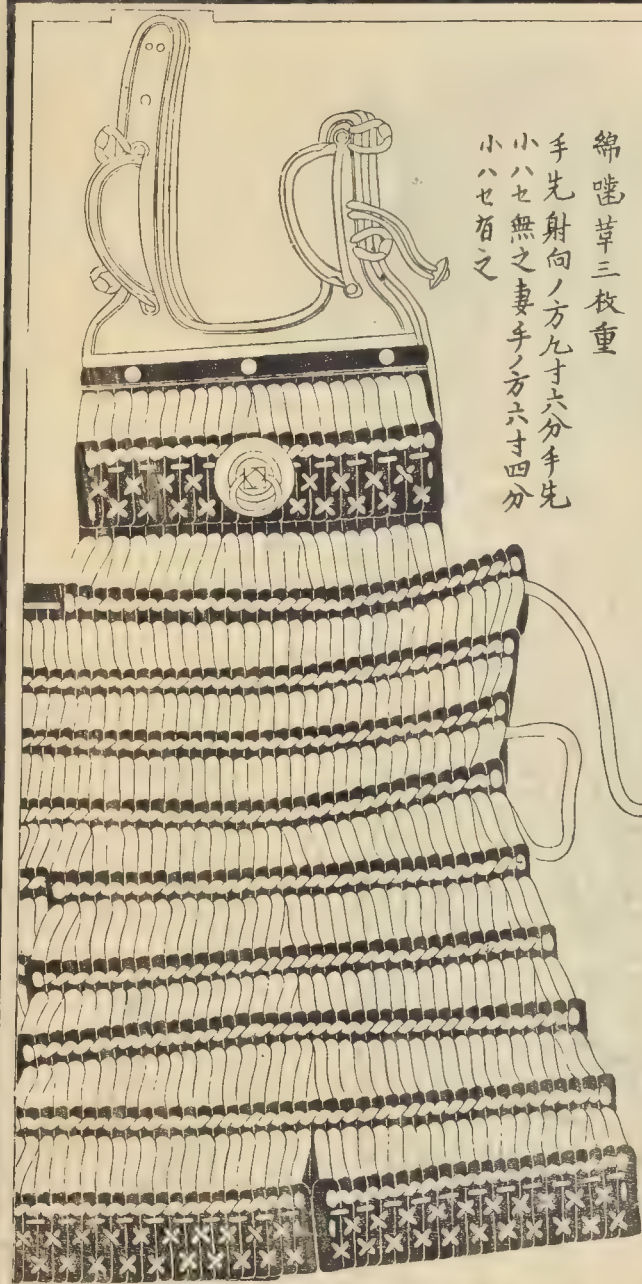 綿噛革三枚重
手先射向ノ方九寸六分手先
小ハセ無之妻手ノ方六寸四分
小ハセ有之